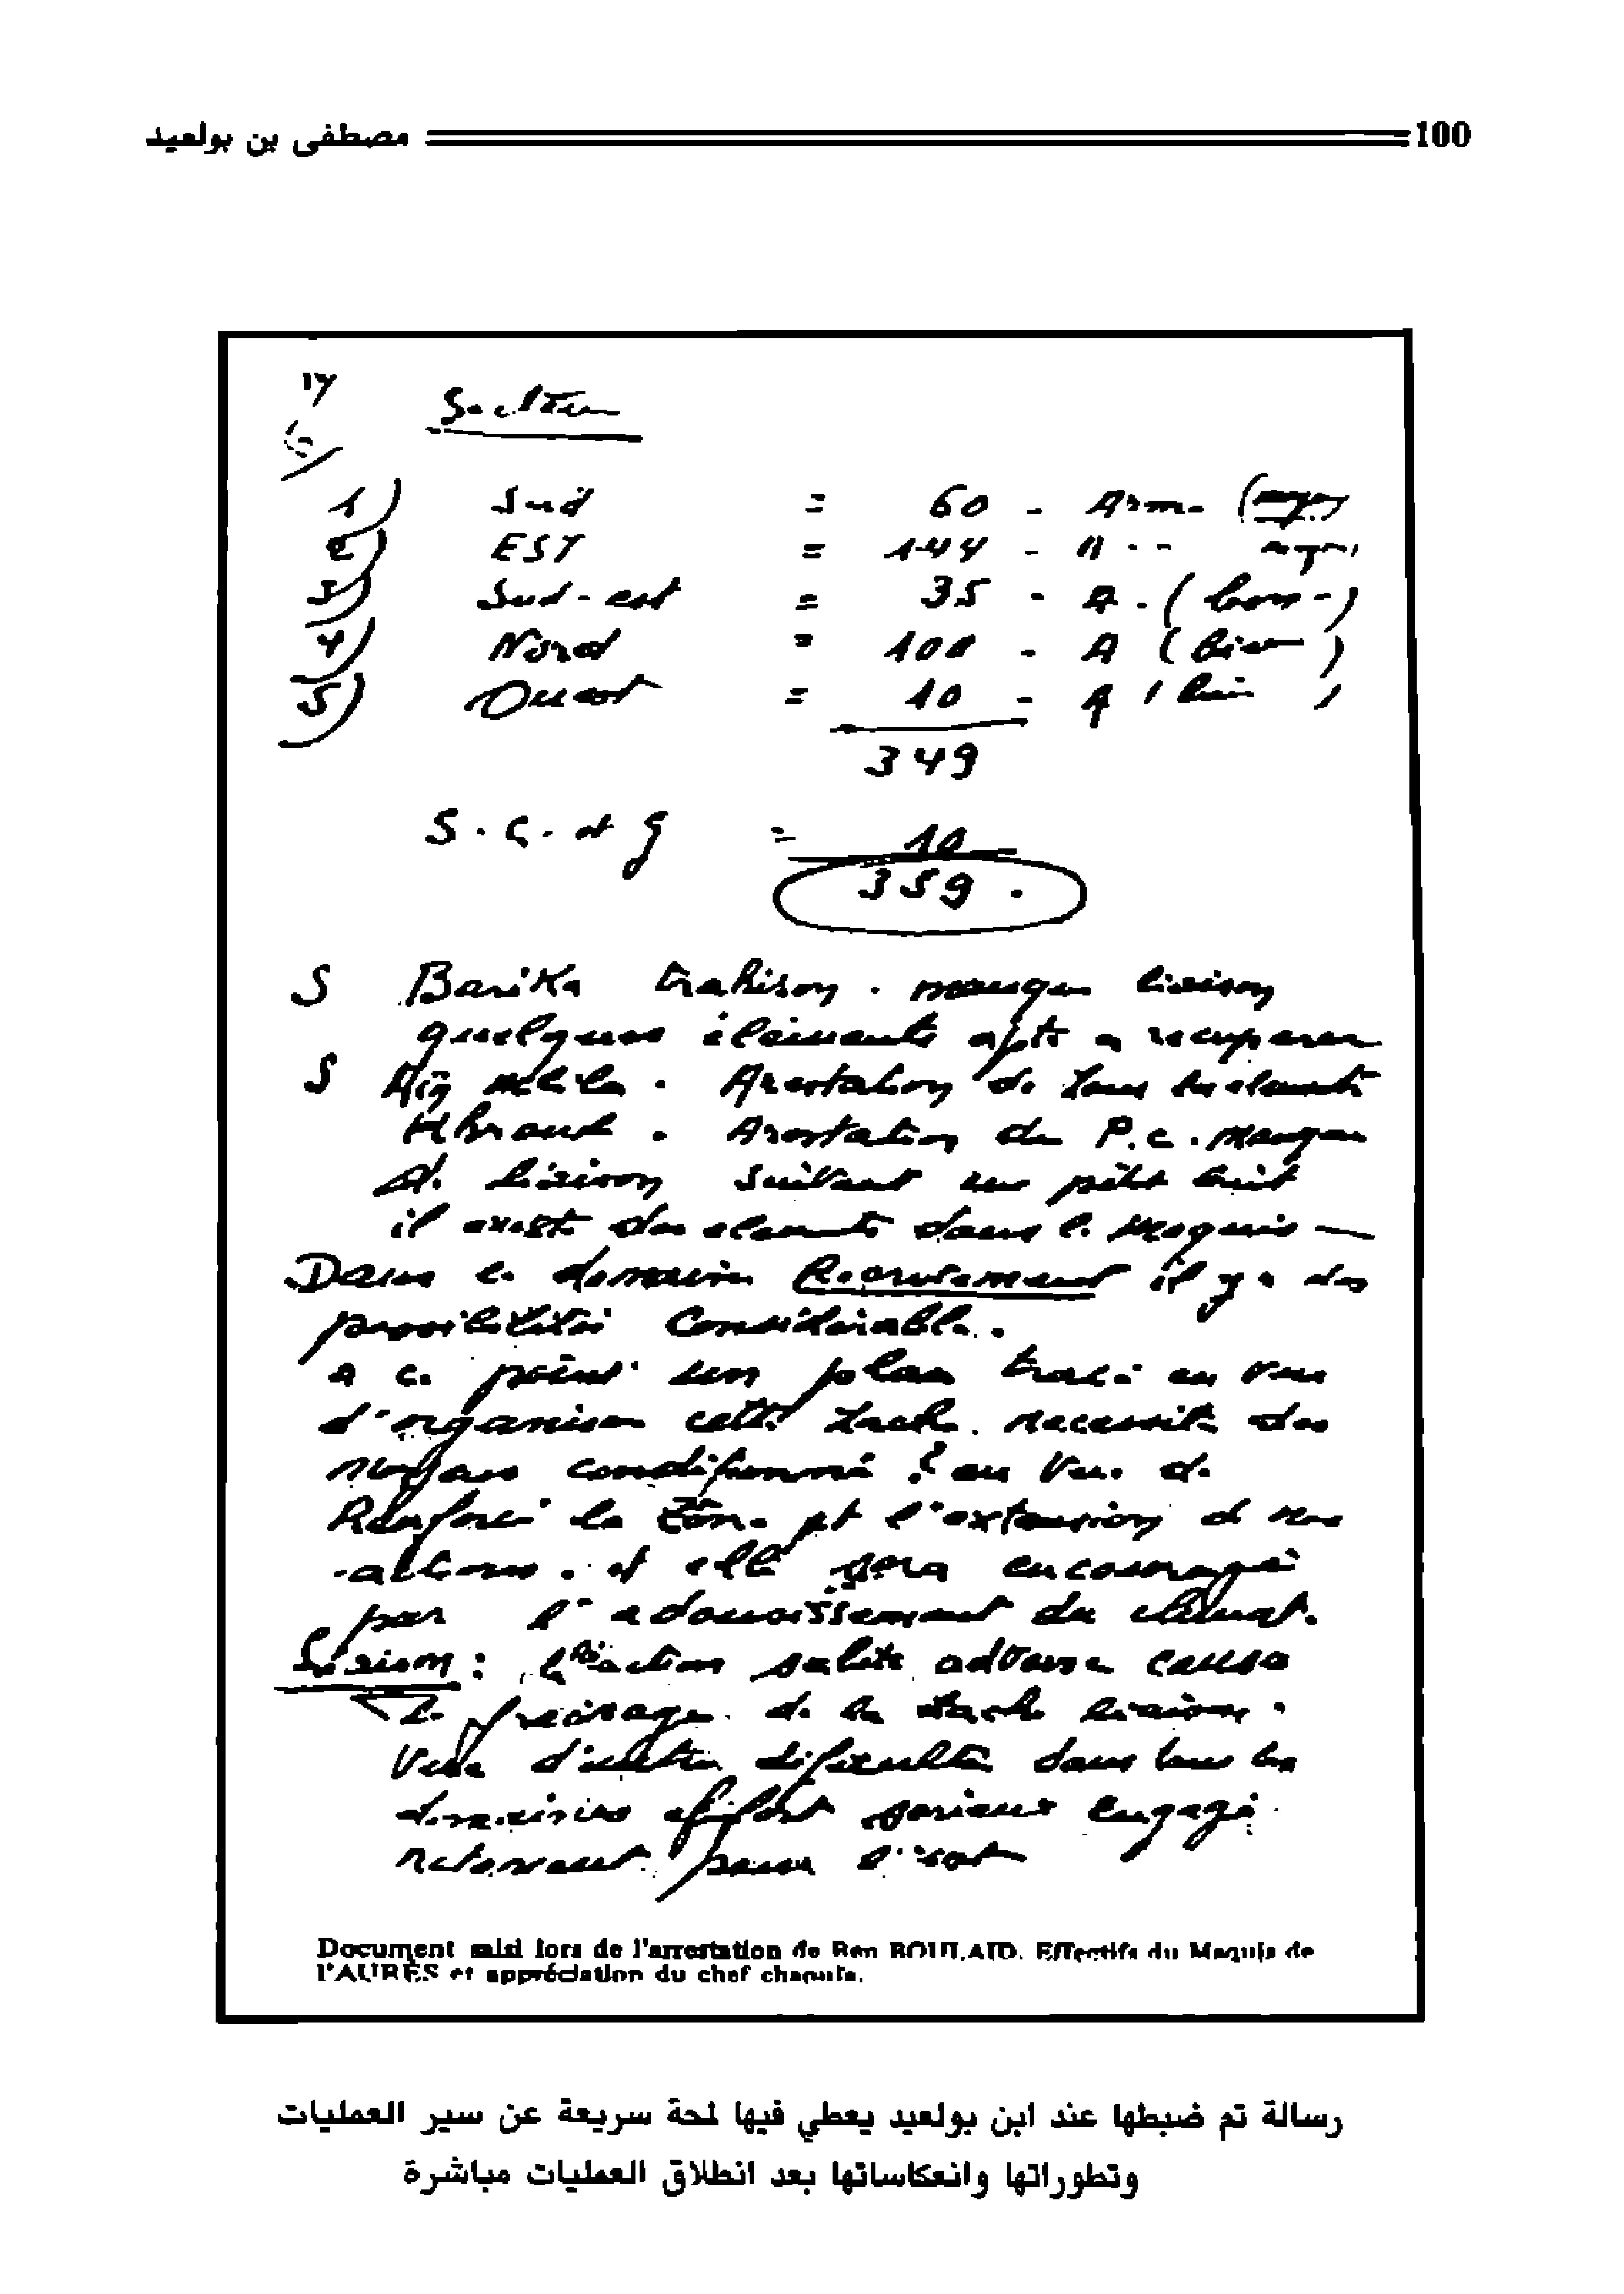 مصطفى بن بولعيد 100
Secteur
1) Sud = 60 - Arm.
2) EST = 144 -
3) Sud-est = 35 - A. (bon-)
4) Nord = 100 - A (Bien)
5) Ouest = 10 - A
349
S. C. et g = 10
359.
S Barika trahison. manque liaison
quelques éléments a recuperer
S Aïn Arestation de Tous
Khroub. Arestation du P.C. manque
d. liaison suivant un petit
il exist des elements dans l. maquis —
Dans le domaine Recrutement il y a des
possibilités Considérable.
a ce point un plan tracé en vue
d'organiser cette tache. necessite des
noyaux conditionné ? en vue de
Renforcé la Zône et l'extension d nos
actions. et elle sera encouragé
par l'adoucissement du climat.
Liaison : l'action subite adverse causa
de la tache liaison.
difficulté dans tous les
domaines effort serieux engagé
pour l'
Document saisi lors de l'arrestation de Ben BOULAID. Effectifs du Maquis de
l'AURES et appréciation du chef chaouïa.
رسالة تم ضبطها عند ابن بولعيد يعطي فيها لمحة سريعة عن سير العمليات
وتطوراتها وانعكاساتها بعد انطلاق العمليات مباشرة